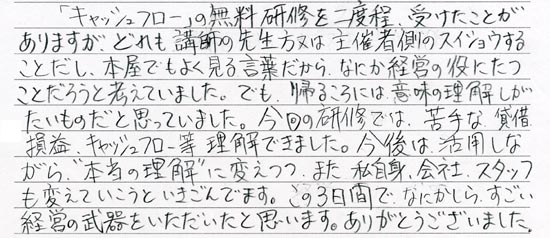 「キャッシュフロー」の無料研修を二度程、受けたことが
ありますが、どれも講師の先生方又は主催者側のスイショウする
ことだし、本屋でもよく見る言葉だから、なにか経営の役にたつ
ことだろうと考えていました。でも、帰るころには意味の理解しが
たいものだと思っていました。今回の研修では、苦手な貸借
損益、キャッシュフロー等理解できました。今後は、活用しな
がら、"本当の理解"に変えつつ、また私自身、会社、スタッフ
も変えていこうといきごんでます。この3日間で、なにかしら、すごい
経営の武器をいただいたと思います。ありがとうございました。